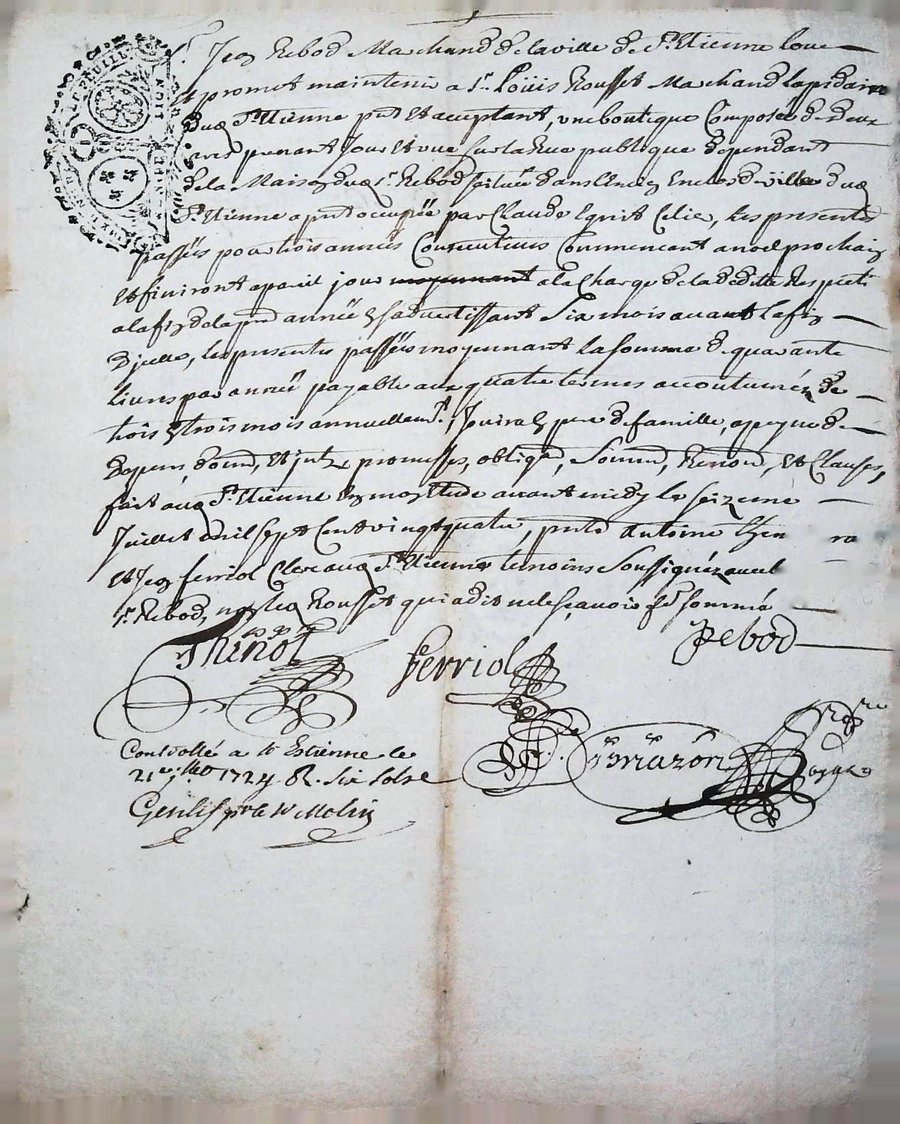 Sr. Jean Rebod Marchand de la ville de St. Etienne loue
et promet maintenir a Sr. Loüis Rousset Marchand lapidaire
dud St. Etienne pnt et acceptant, une boutique Composée de deux
prenant jour et vue sur la Rue publique dependant
de la Maison dud sr. Rebod scituée dans l'encien Enclos de ville dud
St. Etienne a pnt occupée par Claude les presentes
passées pour trois années Consecutives Commencant a noel prochain
et finiront a pareil jour moyennant a la Charge de la deditte Respective
a la fin de la pre année en s'advertissant Six mois avant la fin
D'jcelle, les presentes passées moyennant la somme de quarante
livres par année payable aux quatre termes accoutumés de
trois en trois mois annuellemt., Jouira en pere de famille, a peyne de
depens, dom, et jnt, promesses, oblige, Soumi, Renon, et Clauses,
fait aud St. Etienne en mon etude avant midy le seizeme
Juillet mil sept Cent vingt quatre, pnts antoine
et Jean ferriol Clerc aud St. Etienne temoins Soussignéz avec led
sr. Rebod, non led Rousset qui a dit ne sçavoir de ce sommé
Thinot
Ferriol
Rebod
Contollé a St Estienne le
21e jllet 1724 R. six sols